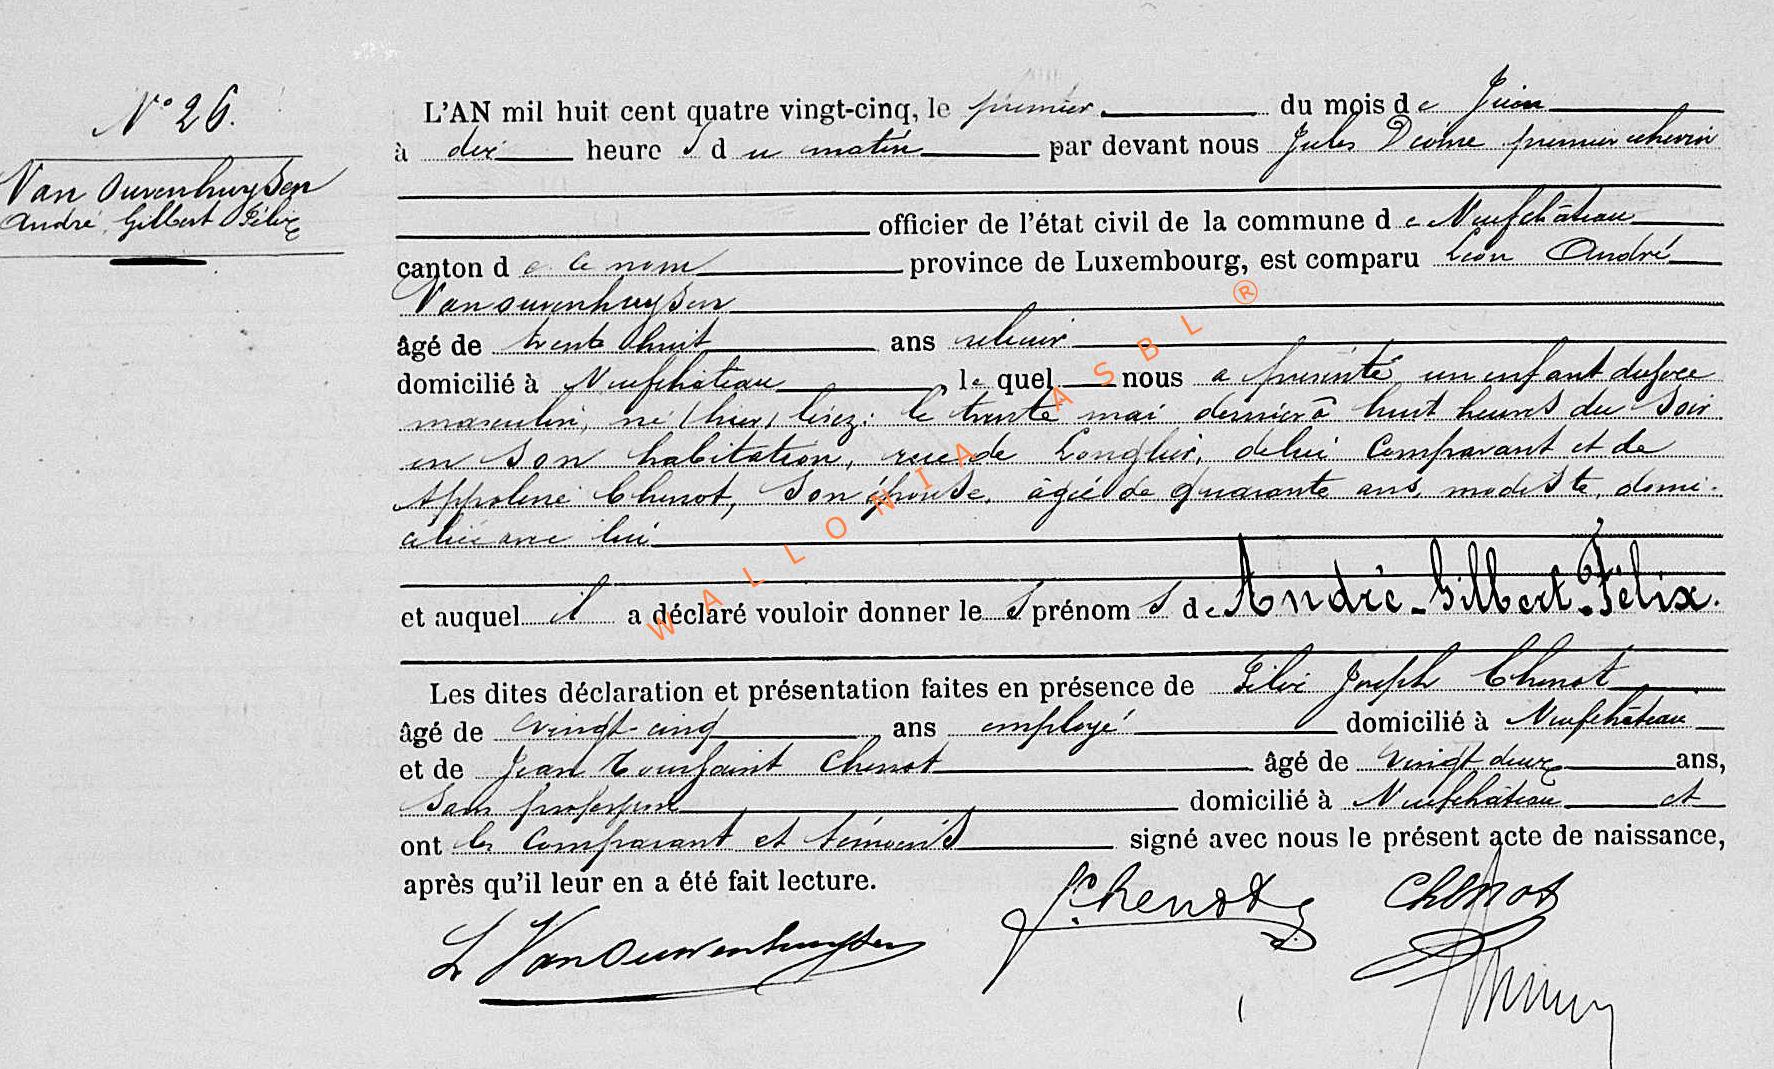 N° 26.
Van Ouvenhuysen
André, Gilbert Félix
L'AN mil huit cent quatre vingt-cinq, le premier du mois de Juin
à dix heures du matin par devant nous Jules premier échevin
officier de l'état civil de la commune de Neufchâteau
canton de ce nom province de Luxembourg, est comparu Léon André
Van ouvenhuysen
âgé de trente huit ans relieur
domicilié à Neufchâteau, lequel nous a présenté un enfant du sexe
masculin, né (hier) lisez: le trente mai dernier à huit heures du soir
en son habitation, rue de Longlier, de lui comparant et de
Appoline Chenot, son épouse, âgée de quarante ans, modiste, domi-
ciliée avec lui
et auquel il a déclaré vouloir donner les prénoms de André-Gilbert-Félix.
Les dites déclaration et présentation faites en présence de Félix Joseph Chenot
âgé de vingt-cinq ans employé domicilié à Neufchâteau
et de Jean Toussaint Chenot âgé de vingt deux ans,
sans profession domicilié à Neufchâteau et
ont les comparant et témoins signé avec nous le présent acte de naissance,
après qu'il leur en a été fait lecture.
L VanOuwenhuysen J. Chenot Chenot
WALLONIA ASBL ®